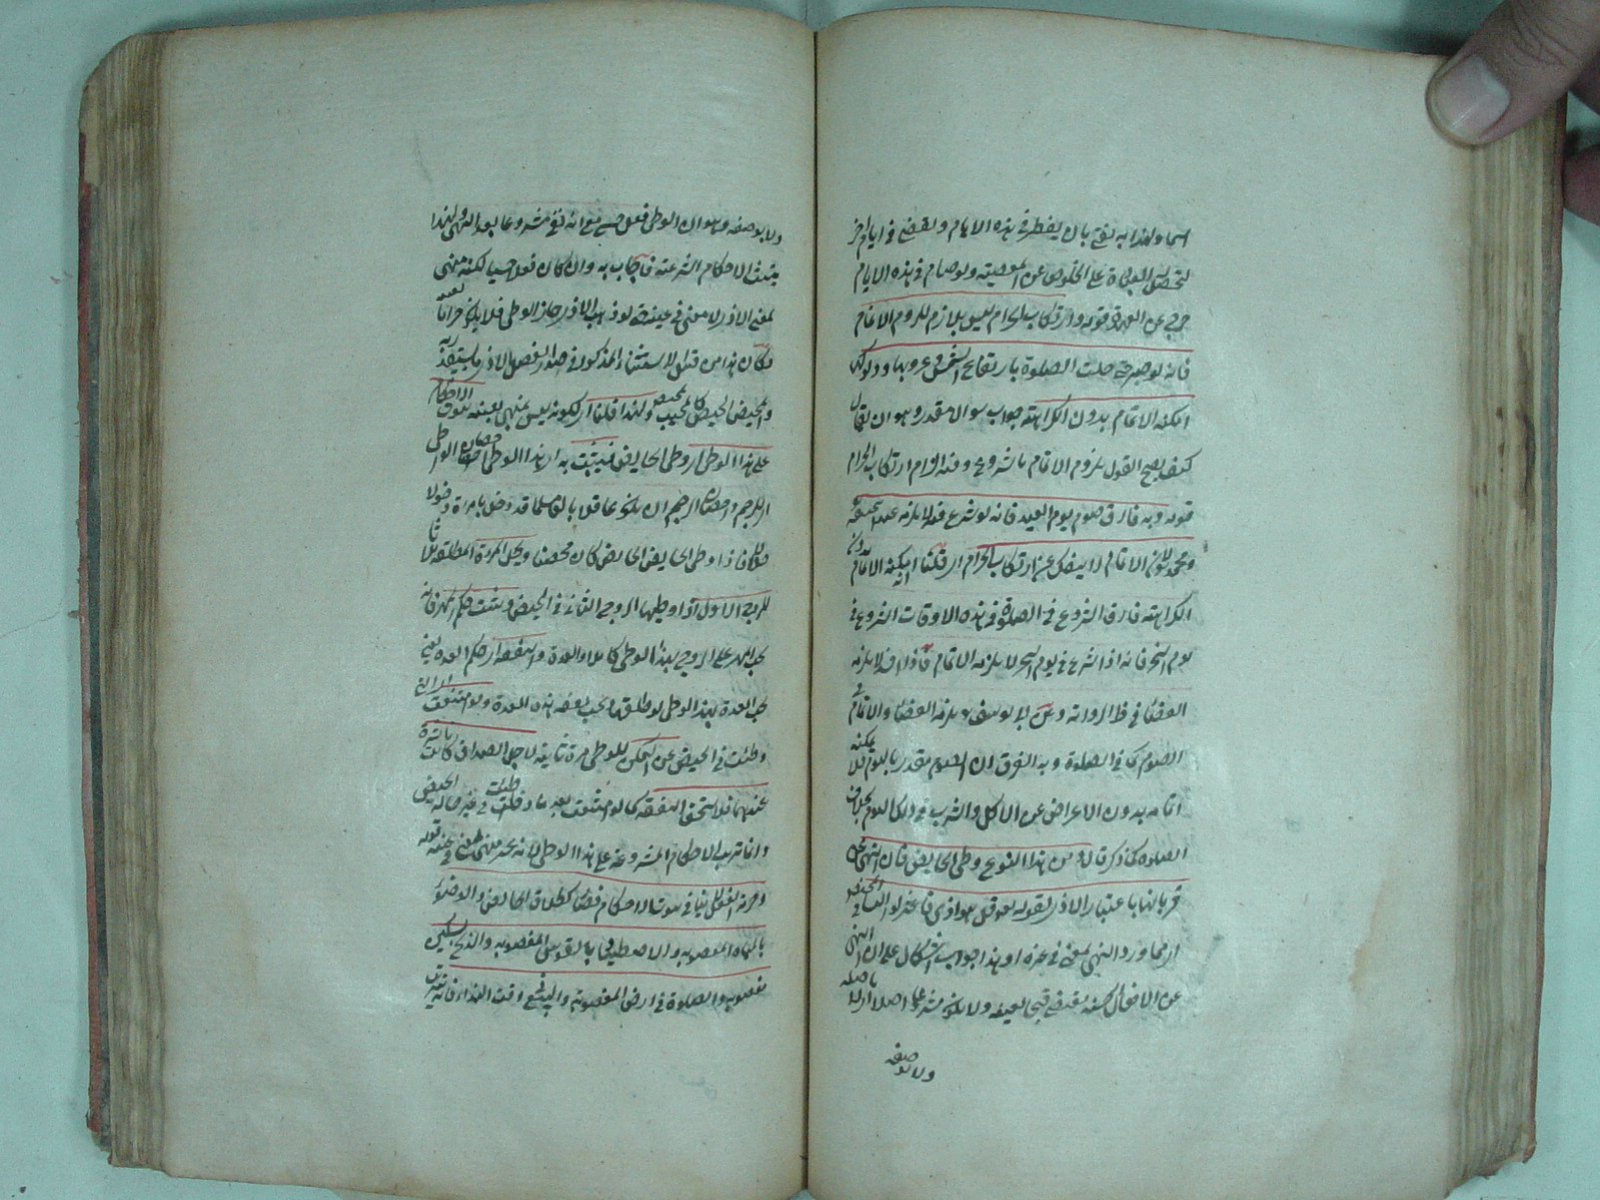 اسما ولهذا انه يفتى بان يفطر فى هذه الايام ويقضى فى ايام اخر
لتحصل العبادة على الخلوص عن المعصية ولو صام فى هذه الايام
خرج عن العهدة قوله وارتكاب الحرام ليس بلازم للزوم الاتمام
فانه لو صبر حتى حلت الصلوة بارتفاع الشمس وغروبها ودلوكها
امكنه الاتمام بدون الكراهة جواب سوال مقدر وهو ان يقال
كيف يصح القول بلزوم الاتمام بالشروع وفيه الزام ارتكاب الحرام
قوله وبه فارق صوم يوم العيد فانه لو شرع فيه لا يلزمه عند ابى حنيفة
ومحمد لان الاتمام لا ينفك عن ارتكاب الحرام اى قلنا انه يمكنه الاتمام بدون
الكراهة فارق الشروع فى الصلوة فى هذه الاوقات الشروع فى
يوم النحر فانه اذا شرع فى يوم النحر لا يلزمه الاتمام فاذا افسد لا يلزمه
القضاء فى ظ الرواية وعن ابى يوسف يلزمه القضاء والاتمام فى
الصوم كما فى الصلوة وبه الفرق ان الصوم مقدر باليوم فلا يمكنه
اتمامه بدون الاعراض عن الاكل والشرب فى ذلك اليوم بخلاف
الصلوة كما ذكر قال ومن هذا النوع وطى الحايض فان النهى عن
قربانها باعتبار الاذى لقوله تعو قل هو اذى فاعتزلوا النساء فى المحيض
اى مما ورد النهى لمعنى فى غيره وهذا جواب اشكال على ان النهى
عن الافعال الحسية يقتضى قبحا لعينه ولا يكون مشروعا اصلا اى لا باصله
ولا بوصفه
ولا بوصفه وهو ان الوطى فعل حسى مع انه بقى مشروعا بعد النهى ولهذا
يثبت الاحكام الشرعية فاجاب به وان كان فعلا حسيا لكنه منهى
لمعنى الاذى لا معنى فى عينه حتى لو ذهب الاذى جاز الوطى فلا يكون حراما لعينه
وكان هذا من قبيل الاستثناء المذكور فى صدر الفصل بالاذى ما يستقذر به
والمحيض الحيض كالمجيب ولهذا قلنا اى لكونه ليس بمنهى لعينه يترتب الاحكام
على هذا الوطى اى وطى الحايض فيثبت به اى بهذا الوطى احصان الواطى
اى للرجم واحصان الرجم ان يكون عاقلا بالغا مسلما قد دخل بامراة دخولا
حلالا فاذا وطى الحايض كان محصنا ويحل المراة المطلقة ثلاثا
للزوج الاول اذا وطيها الزوج الثانى فى الحيض ويثبت حكم المهر فانه
يجب المهر على الزوج بهذا الوطى كاملا والعدة والنفقة اى حكم العدة يعنى
تجب العدة بهذا الوطى لو طلقها وتجب نفقة هذه العدة ولو امتنعت المراة التى
وطئت فى الحيض عن التمكن للوطى مرة ثانية لاجل الصداق كانت ناشزة
عندهما فلا تستحق النفقة كما لو امتنعت بعد ما وطئت فى غير حالة الحيض
وانما ترتب الاحكام المشروعة على هذا الوطى لانه غير منهى لمعنى فى عينه قوله
وحرمة الفعل لا ينافى ترتب الاحكام قضاء كطلاق الحايض والوضوء
بالمياه المغصوبة والاصطياد بالقوس المغصوبة والذبح بسكين
مغصوبة والصلوة فى ارض المغصوبة والبيع وقت النداء فانه يترتب